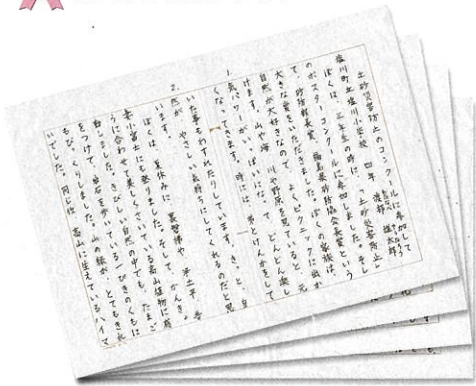 土砂災害防止のコンクールに参加して
塩川町立塩川小学校 四年
ぼくは、三年生の時に、「土砂災害防止」
のポスターコンクールに参加しました。そし
て、砂防部長賞、福島県砂防協会長賞という
大きな賞をいただきました。ぼくの家族は、
自然が大好きなので、よくピクニックに出か
けます。山や海、川や野原を見ていると、元
気パワーがいっぱいになって、どんどん楽し
くなってきます。時には、弟とけんかをして
いた事もわすれたりしています。きっと、自
然が、やさしい気持ちにしてくれるのだと思
います。
ぼくは、夏休みに、裏磐梯や、浄土平、吾
妻小富士にも登りました。そして、かんきょ
うに合わせて美しくさいている高山植物に感
動しました。きびしい自然の中でも、たまご
をつけて、岩石を歩いている一ぴきのくもに
もびっくりしました。山の緑が、とてもきれ
いでした。同じ位、高山に生えているハイマ